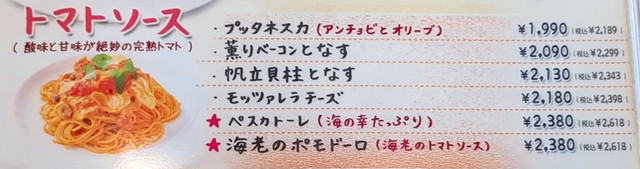 トマトソース
( 酸味と甘味が絶妙の完熟トマト )
・プッタネスカ (アンチョビとオリーブ) ¥1,990 (税込¥2,189)
・薫りベーコンとなす ¥2,090 (税込¥2,299)
・帆立貝柱となす ¥2,130 (税込¥2,343)
・モッツァレラチーズ ¥2,180 (税込¥2,398)
★ペスカトーレ (海の幸たっぷり) ¥2,380 (税込¥2,618)
★海老のポモドーロ (海老のトマトソース) ¥2,380 (税込¥2,618)